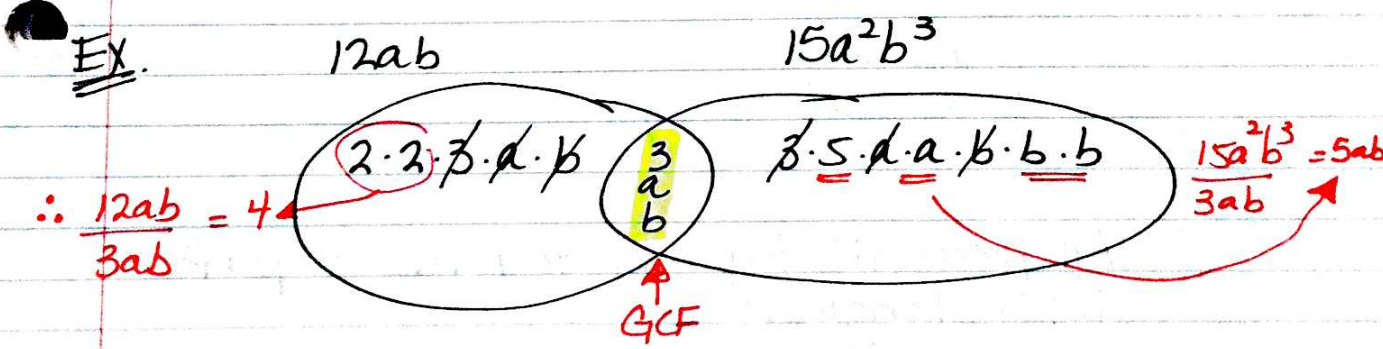 EX. 12ab 15a²b³
2·2·3·a·b 3 a b 3·5·a·a·b·b·b
∴ 12ab/3ab = 4
15a²b³/3ab = 5ab
GCF